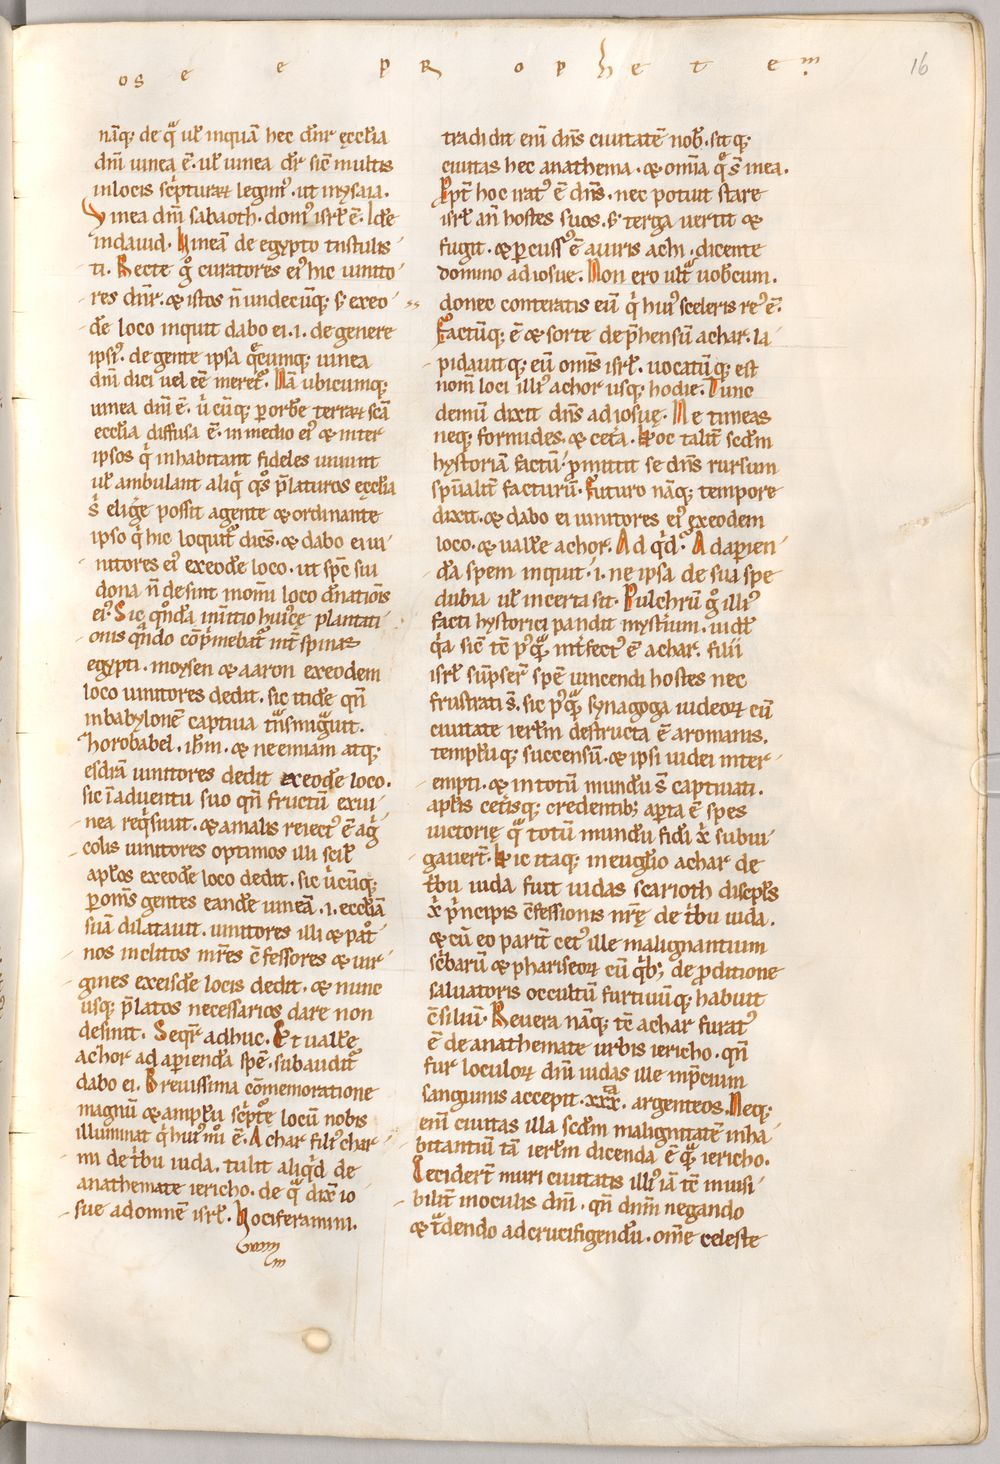 os e e p R o p h e t e m
16
nãq; de q̃ ul' inquã hec dr̃ ęccl'ia
dñi uinea ẽ. ul' uinea dr̃ sic̃ multis
inlocis sc̃pturarꝝ legim᾽. ut inysaia.
Vinea dñi sabaoth. dom᾽ isrl' ẽ. Ide
indauid. Vineã de egypto tnstulis
ti. Recte g̊ curatores ei᾽ hic uinito
res dñr. & istos ñ undecũq; s; exeo
dẽ loco inquit dabo ei .i. de genere
ipsi᾽. de gente ipsa q̃cumq; uinea
dñi dici uel eẽ meret᾽. Nã ubicumq;
uinea dñi ẽ. ů cũq; p orbẽ terrarꝝ scã
eccl'ia diffusa ẽ. in medio ei᾽ & inter
ipsos q̇ inhabitant fideles uiuunt
ul' ambulant aliq̇ q̊s p̃laturos eccl'ia
s̃ eligẽ possit agente & ordinante
ipso q̇ hic loquit᾽ dicẽs. & dabo ei ui
nitores ei᾽ exeodẽ loco. ut spc̃ sui
dona ñ desint inom̃i loco dñationis
ei᾽. Sic q̊nda initio hui᾽cę plantati
onis q̃ndo cõp̃mebat᾽ int̃ spinas
egypti. moysen & aaron exeodem
loco uinitores dedit. sic itidẽ qñ
inbabylonẽ captiua tñsmiguit.
horobabel. ihm̃. & neemiam atq;
esdrã uinitores dedit exeodẽ loco.
sic ĩ aduentu suo qñ fructũ exui
nea req̇siuit. & amalis reiect᾽ ẽ ag̃
colis uinitores optimos illi scil'
apl'os exeodẽ loco dedit. sic ůcũq;
p om̃s gentes eandẽ uineã .i. eccl'iã
suã dilatauit. uinitores illi & pat̊
nos inclitos mr̃es c̃fessores & uir
gines exeisdẽ locis dedit. & nunc
usq; p̃latos necessarios dare non
desinit. Seqr̃ adhuc. Et uallẽ
achor ad apiendã spẽ. subaudit᾽
dabo ei. Breuissima cõmemoratione
magnũ & amplũ sc̃ptę locũ nobis
illuminat q̇ hui᾽mo̊i ẽ. Achar fili᾽ char
mi de tbu iuda. tulit aliq̇d de
anathemate iericho. de q̃ dix̃ io
sue adomnẽ isrl'. Vociferamini.
tradidit eni dñs ciuitatẽ nob̃. sit q;
ciuitas hec anathema. & om̃ia q̃ s̃ inea.
Ppt̃ hoc irat᾽ ẽ dñs. nec potuit stare
isrl' añ hostes suos. s; terga uertit &
fugit. & pcuss᾽ ẽ auiris achi. dicente
domino adiosue. Non ero ult̃ uobcum.
donec conteratis eũ q̇ hui᾽ sceleris re᾽ ẽ.
Factũq; ẽ & sorte dep̃hensũ achar. la
pidauitq; eũ omis isrl'. uocatũ q; est
nom̃ loci illi᾽ achor usq; hodie. Tunc
demũ dixit dñs ad iosuę. Ne timeas
neq; formides. & cet̃a. Hoc talit̃ scdm̃
hystoriã factũ. p̃mittit se dñs rursum
spũalit̃ facturũ. Futuro nãq; tempore
dixit. & dabo ei uinitores ei᾽ exeodem
loco. & uallẽ achor. Ad q̇d᾽. Adapien
dã spem inquit .i. ne ipsa de sua spe
dubia ul' incerta sit. Pulchrũ g̊ illi᾽
facti hystorici pandit mystium. uidl'
q̇a sic̃ tẽ p᾽q̃ int̃fect᾽ ẽ achar. filii
isrl' sũpser̃ spẽ uincendi hostes nec
frustrati s̃. sic p᾽q̃ synagoga iudeorꝝ cũ
ciuitate ierl'm destructa ẽ aromanis.
templũq; succensũ. & ipsi iudei inter
empti. & intotũ mundũ s̃ captiuati.
apl'is cet̃isq; credentib; apta ẽ spes
uictorię q̃ totũ mundũ fidi x̃ subiu
gauert̃. Hic itaq; ineuglio achar de
tbu iuda fuit iudas scarioth discipl's
x̃ p̃ncipis c̃fessionis nr̃ę de tbu iuda.
& cũ eo parit̃ cet᾽ ille malignantium
sc̃barũ & phariseorꝝ cũ q̇b; de pditione
saluatoris occultũ furtiuũq; habuit
c̃siliũ. Reuera nãq; tẽ achar furat᾽
ẽ de anathemate urbis iericho. qñ
fur loculorꝝ dñi iudas ille inp̃cium
sanguinis accepit .xxx. argenteos. Neq;
eni ciuitas illa scdm̃ malignitatẽ inha
bitantiũ tã ierl'm dicenda ẽ q̃ iericho.
Ceciderт̃ muri ciuitatis illi᾽ iã tẽ inuisi
bilit̃ inoculis dñi. qñ dnm̃ negando
& tdendo adcrucifigendũ. om̃e celeste